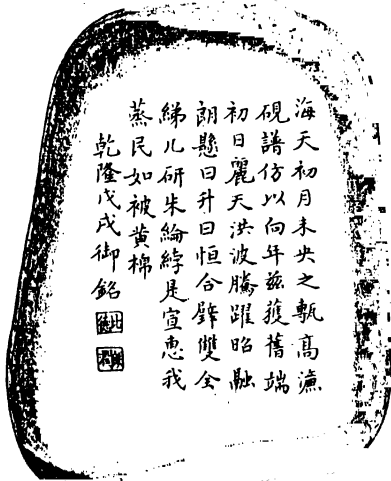 海天初月未央之甎高濂
硯譜仿以向年茲獲舊端
初日麗天洪波騰躍昭融
朗懸曰升曰恒合璧雙全
綈几研朱綸綍是宣惠我
蒸民如被黄棉
乾隆戊戌御銘